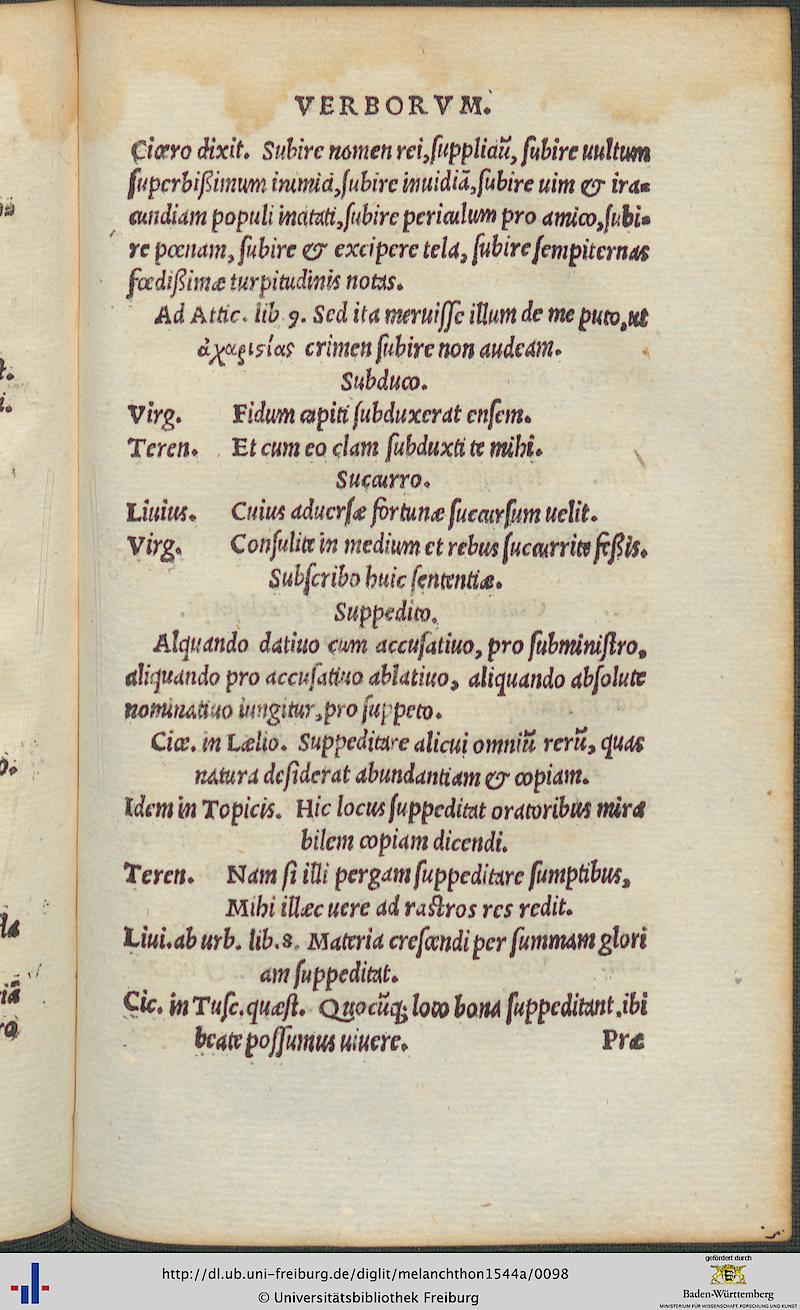 VERBORVM.
Cicero dixit. Subire nomen rei, suppliciũ, subire uultum
superbißimum inimici, subire inuidiã, subire uim & ira-
cundiam populi incitati, subire periculum pro amico, subi-
re pœnam, subire & excipere tela, subire sempiternas
fœdißimæ turpitudinis notas.
Ad Attic. lib. 9. Sed ita meruisse illum de me puto, ut
ἀχαριςίας crimen subire non audeam.
Subduco.
Virg. Fidum capiti subduxerat ensem.
Teren. Et cum eo clam subduxti te mihi.
Sucurro.
Liuius. Cuius aduersæ fortunæ sucursum uelit.
Virg. Consulite in medium et rebus sucurrite feßis.
Subscribo huic sententiæ.
Suppedito.
Alquando datiuo cum accusatiuo, pro subministro,
aliquando pro accusatiuo ablatiuo, aliquando absolute
nominatiuo iungitur, pro suppeto.
Cice. in Lælio. Suppeditare alicui omniũ rerũ, quas
natura desiderat abundantiam & copiam.
Idem in Topicis. Hic locus suppeditat oratoribus mira
bilem copiam dicendi.
Teren. Nam si illi pergam suppeditare sumptibus,
Mihi illæc uere ad rastros res redit.
Liui. ab urb. lib. 8. Materia crescendi per summam glori
am suppeditat.
Cic. in Tusc. quæst. Quocũq; loco bona suppeditant, ibi
beate possumus uiuere. Præ
http://dl.ub.uni-freiburg.de/diglit/melanchthon1544a/0098
© Universitätsbibliothek Freiburg
gefördert durch
Baden-Württemberg
MINISTERIUM FÜR WISSENSCHAFT, FORSCHUNG UND KUNST